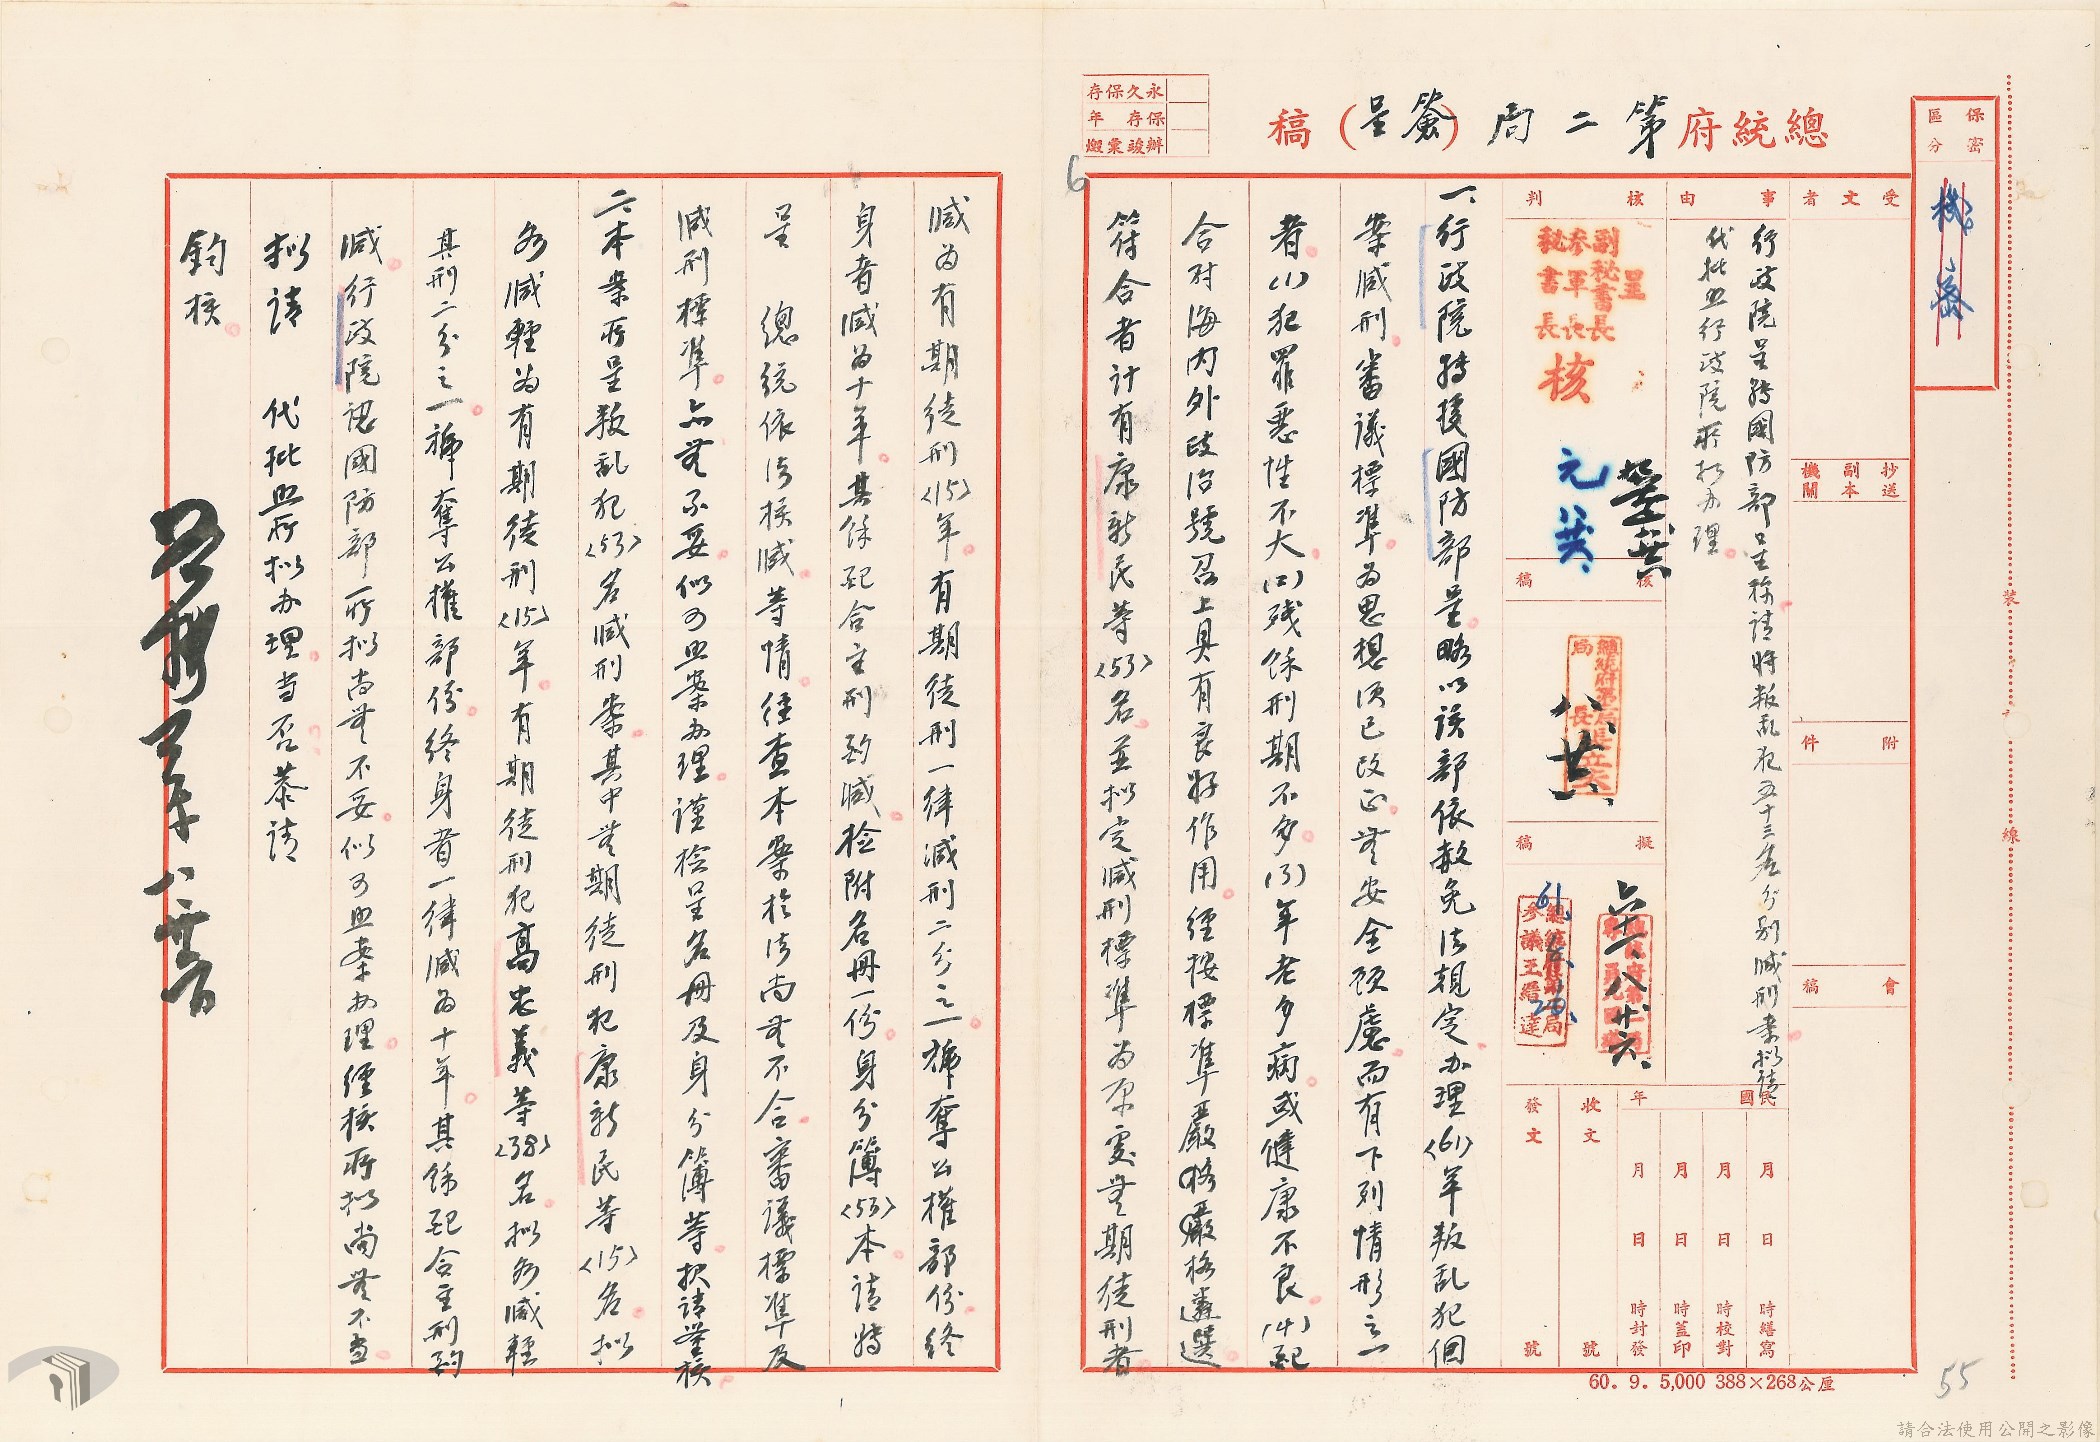 保密
區分
機密
總統府第二局(簽呈)稿
永久保存
保存 年
辦竣彙燬
6
受文者
抄送
副本
機關
附件
會稿
事由
行政院呈轉國防部呈称請將叛乱犯五十三名分別減刑案拟請
代批照行政院所拟办理。
核判
呈
副秘書長
參軍長
秘書長
核
元
核稿
八、廿六、
擬稿
六十一、八、廿六、
61.
參議王縉達
民國 年
月 日 時繕寫
月 日 時校對
月 日 時蓋印
月 日 時封發
收文 號
發文 號
一、行政院轉據國防部呈略以該部依赦免法規定办理(61)年叛乱犯個
案減刑審議標準為思想須已改正無安全顧慮而有下列情形之一
者(1)犯罪惡性不大(2)殘餘刑期不多(3)年老多病或健康不良(4)配
合對海內外政治號召上具有良好作用。經按標準嚴格遴選
符合者計有康新民等(53)名並拟定減刑標準為原處無期徒刑者
減為有期徒刑(15)年有期徒刑一律減刑二分之一褫奪公權部份終
身者減為十年其餘配合主刑酌減檢附名冊一份身分簿(53)本請轉
呈 總統依法核減等情。経查本案於法尚無不合審議標準及
減刑標準亦無不妥似可照案办理謹檢呈名冊及身分簿等报請鑒核
二、本案所呈叛乱犯(53)名減刑案其中無期徒刑犯康新民等(15)名拟
各減輕為有期徒刑(15)年。有期徒刑犯高忠義等(38)名拟各減輕
其刑二分之一褫奪公權部份終身者一律減為十年其餘配合主刑酌
減。行政院認國防部所拟尚無不妥似可照案办理經核所拟尚無不當
拟請 代批照所拟办理當否恭請
鈞核。
裝
線
60. 9. 5,000 388×268公厘
55
請合法使用公開之影像